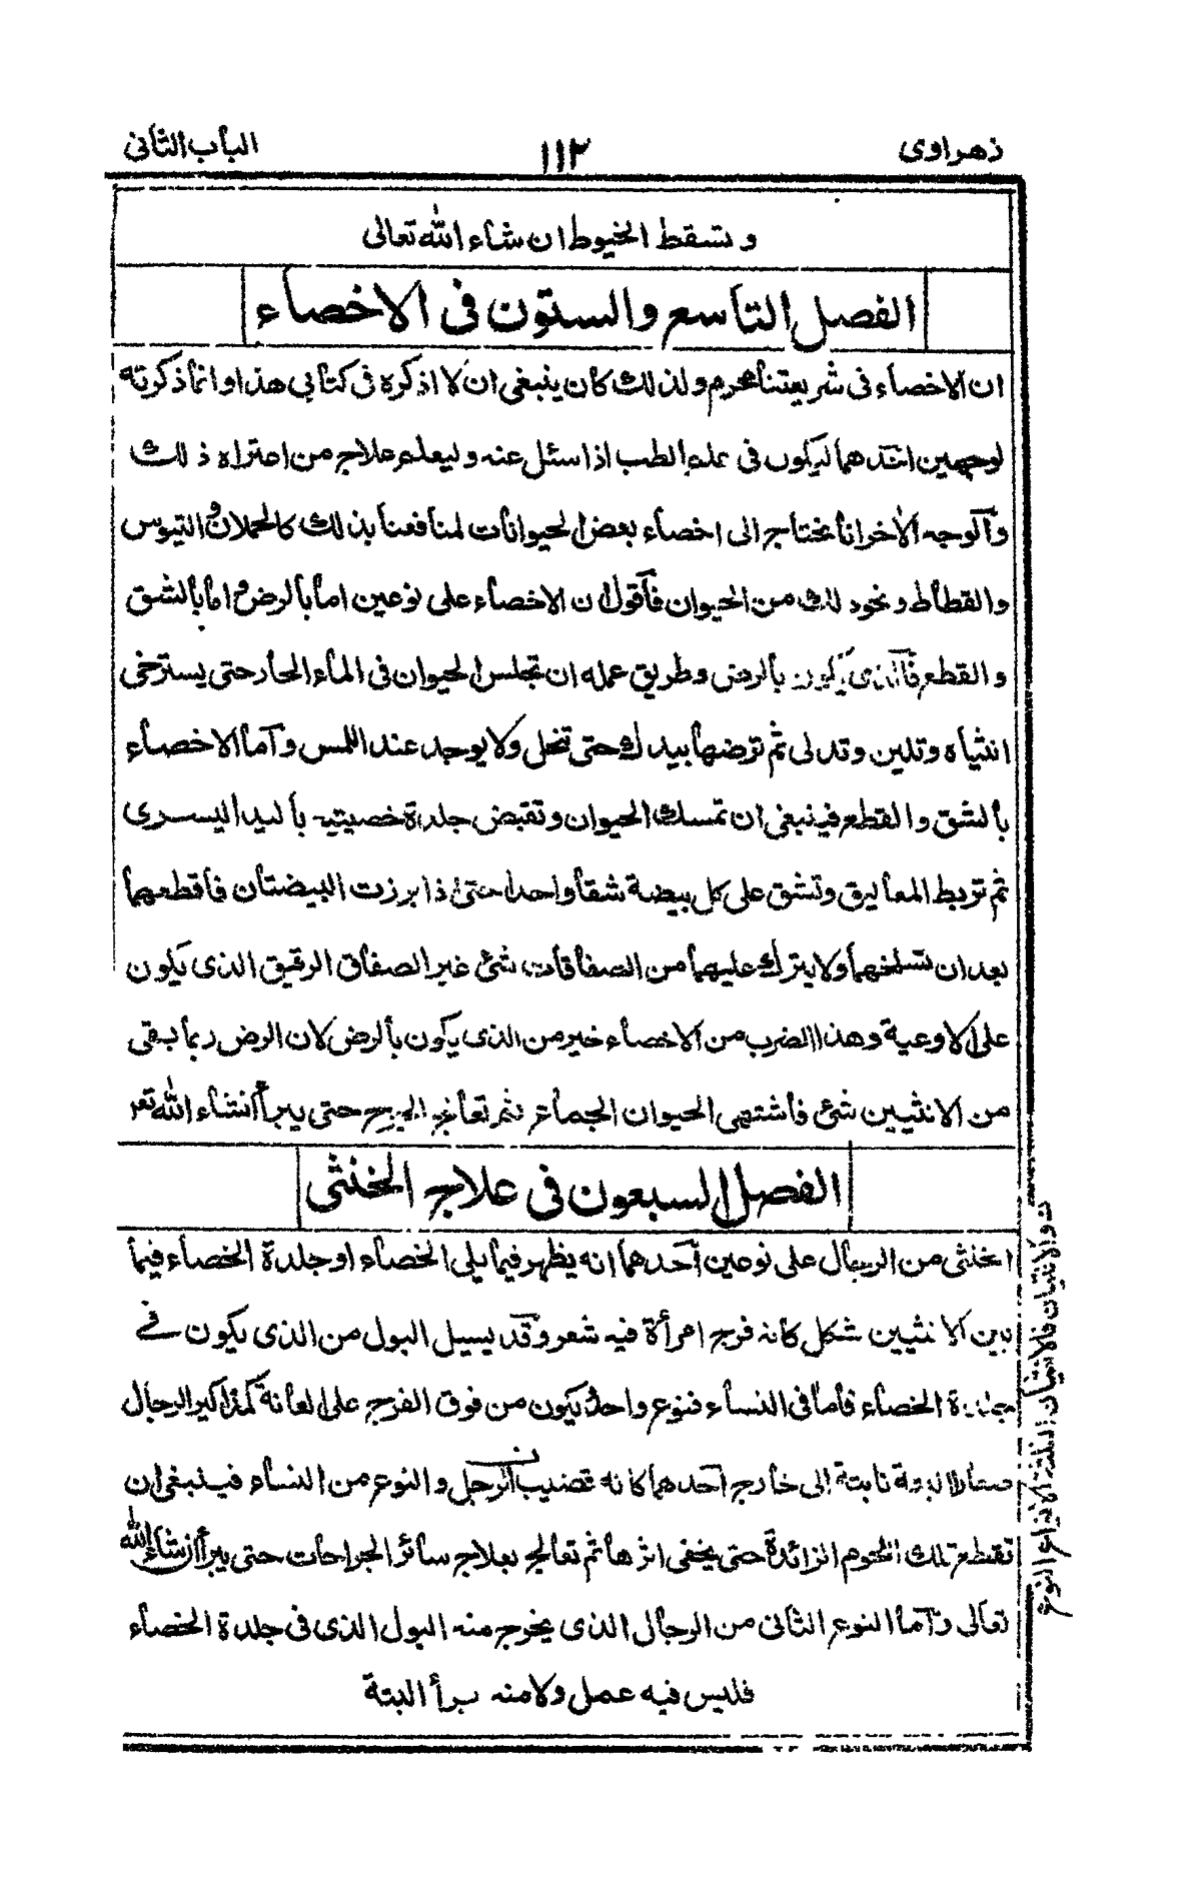 زهراوى
١١٢
الباب الثانى
و تسقط الخيوط ان شاء الله تعالى
الفصل التاسع والستون فى الاخصاء
ان الاخصاء فى شريعتنا محرم ولذلك كان ينبغى ان لا اذكره فى كتابى هذا وانما ذكرته
لوجهين احدهما ليكون فى علم الطب اذا سئل عنه وليعلم علاج من اعتراه ذلك
والوجه الاخر انا نحتاج الى اخصاء بعض الحيوانات لمنافعنا بذلك كالحملان والتيوس
والقطاط ونحو ذلك من الحيوان فاقول ان الاخصاء على نوعين اما بالرض واما بالشق
والقطع فالذى يكون بالرض وطريق عمله ان تجلس الحيوان فى الماء الحار حتى يسترخى
انثياه وتلين وتدلى ثم ترضها بيدك حتى تنحل ولا يوجد عند اللمس واما الاخصاء
بالشق والقطع فينبغى ان تمسك الحيوان وتقبض جلدة خصيتيه باليد اليسرى
ثم تربط المعاليق وتشق على كل بيضة شقا واحدا حتى اذا برزت البيضتان فاقطعهما
بعد ان تسلخهما ولا يترك عليهما من الصفاقات شئ غير الصفاق الرقيق الذى يكون
على الاوعية وهذا الضرب من الاخصاء خير من الذى يكون بالرض لان الرض ربما بقى
من الانثيين شئ فاشتهى الحيوان الجماع ثم تعالج الجرح حتى يبرأ انشاء الله تعر
الفصل السبعون فى علاج الخنثى
الخنثى من الرجال على نوعين احدهما انه يظهر فيما يلى الخصاء او جلدة الخصاء فيما
بين الانثيين شكل كانه فرج امرأة فيه شعر وقد يسيل البول من الذى يكون فى
جلدة الخصاء فاما فى النساء فنوع واحد يكون من فوق الفرج على العانة كمذاكير الرجال
صغار نابتة الى خارج احدهما كانه قضيب الرجل والنوع من النساء فينبغى ان
تقطع تلك اللحوم الزائدة حتى يخفى اثرها ثم تعالج بعلاج سائر الجراحات حتى يبرأ ان شاء الله
تعالى واما النوع الثانى من الرجال الذى يخرج منه البول الذى فى جلدة الخصاء
فليس فيه عمل ولا منه برأ البتة
والانثيان فالانثيان الثلثة الانواع النوع